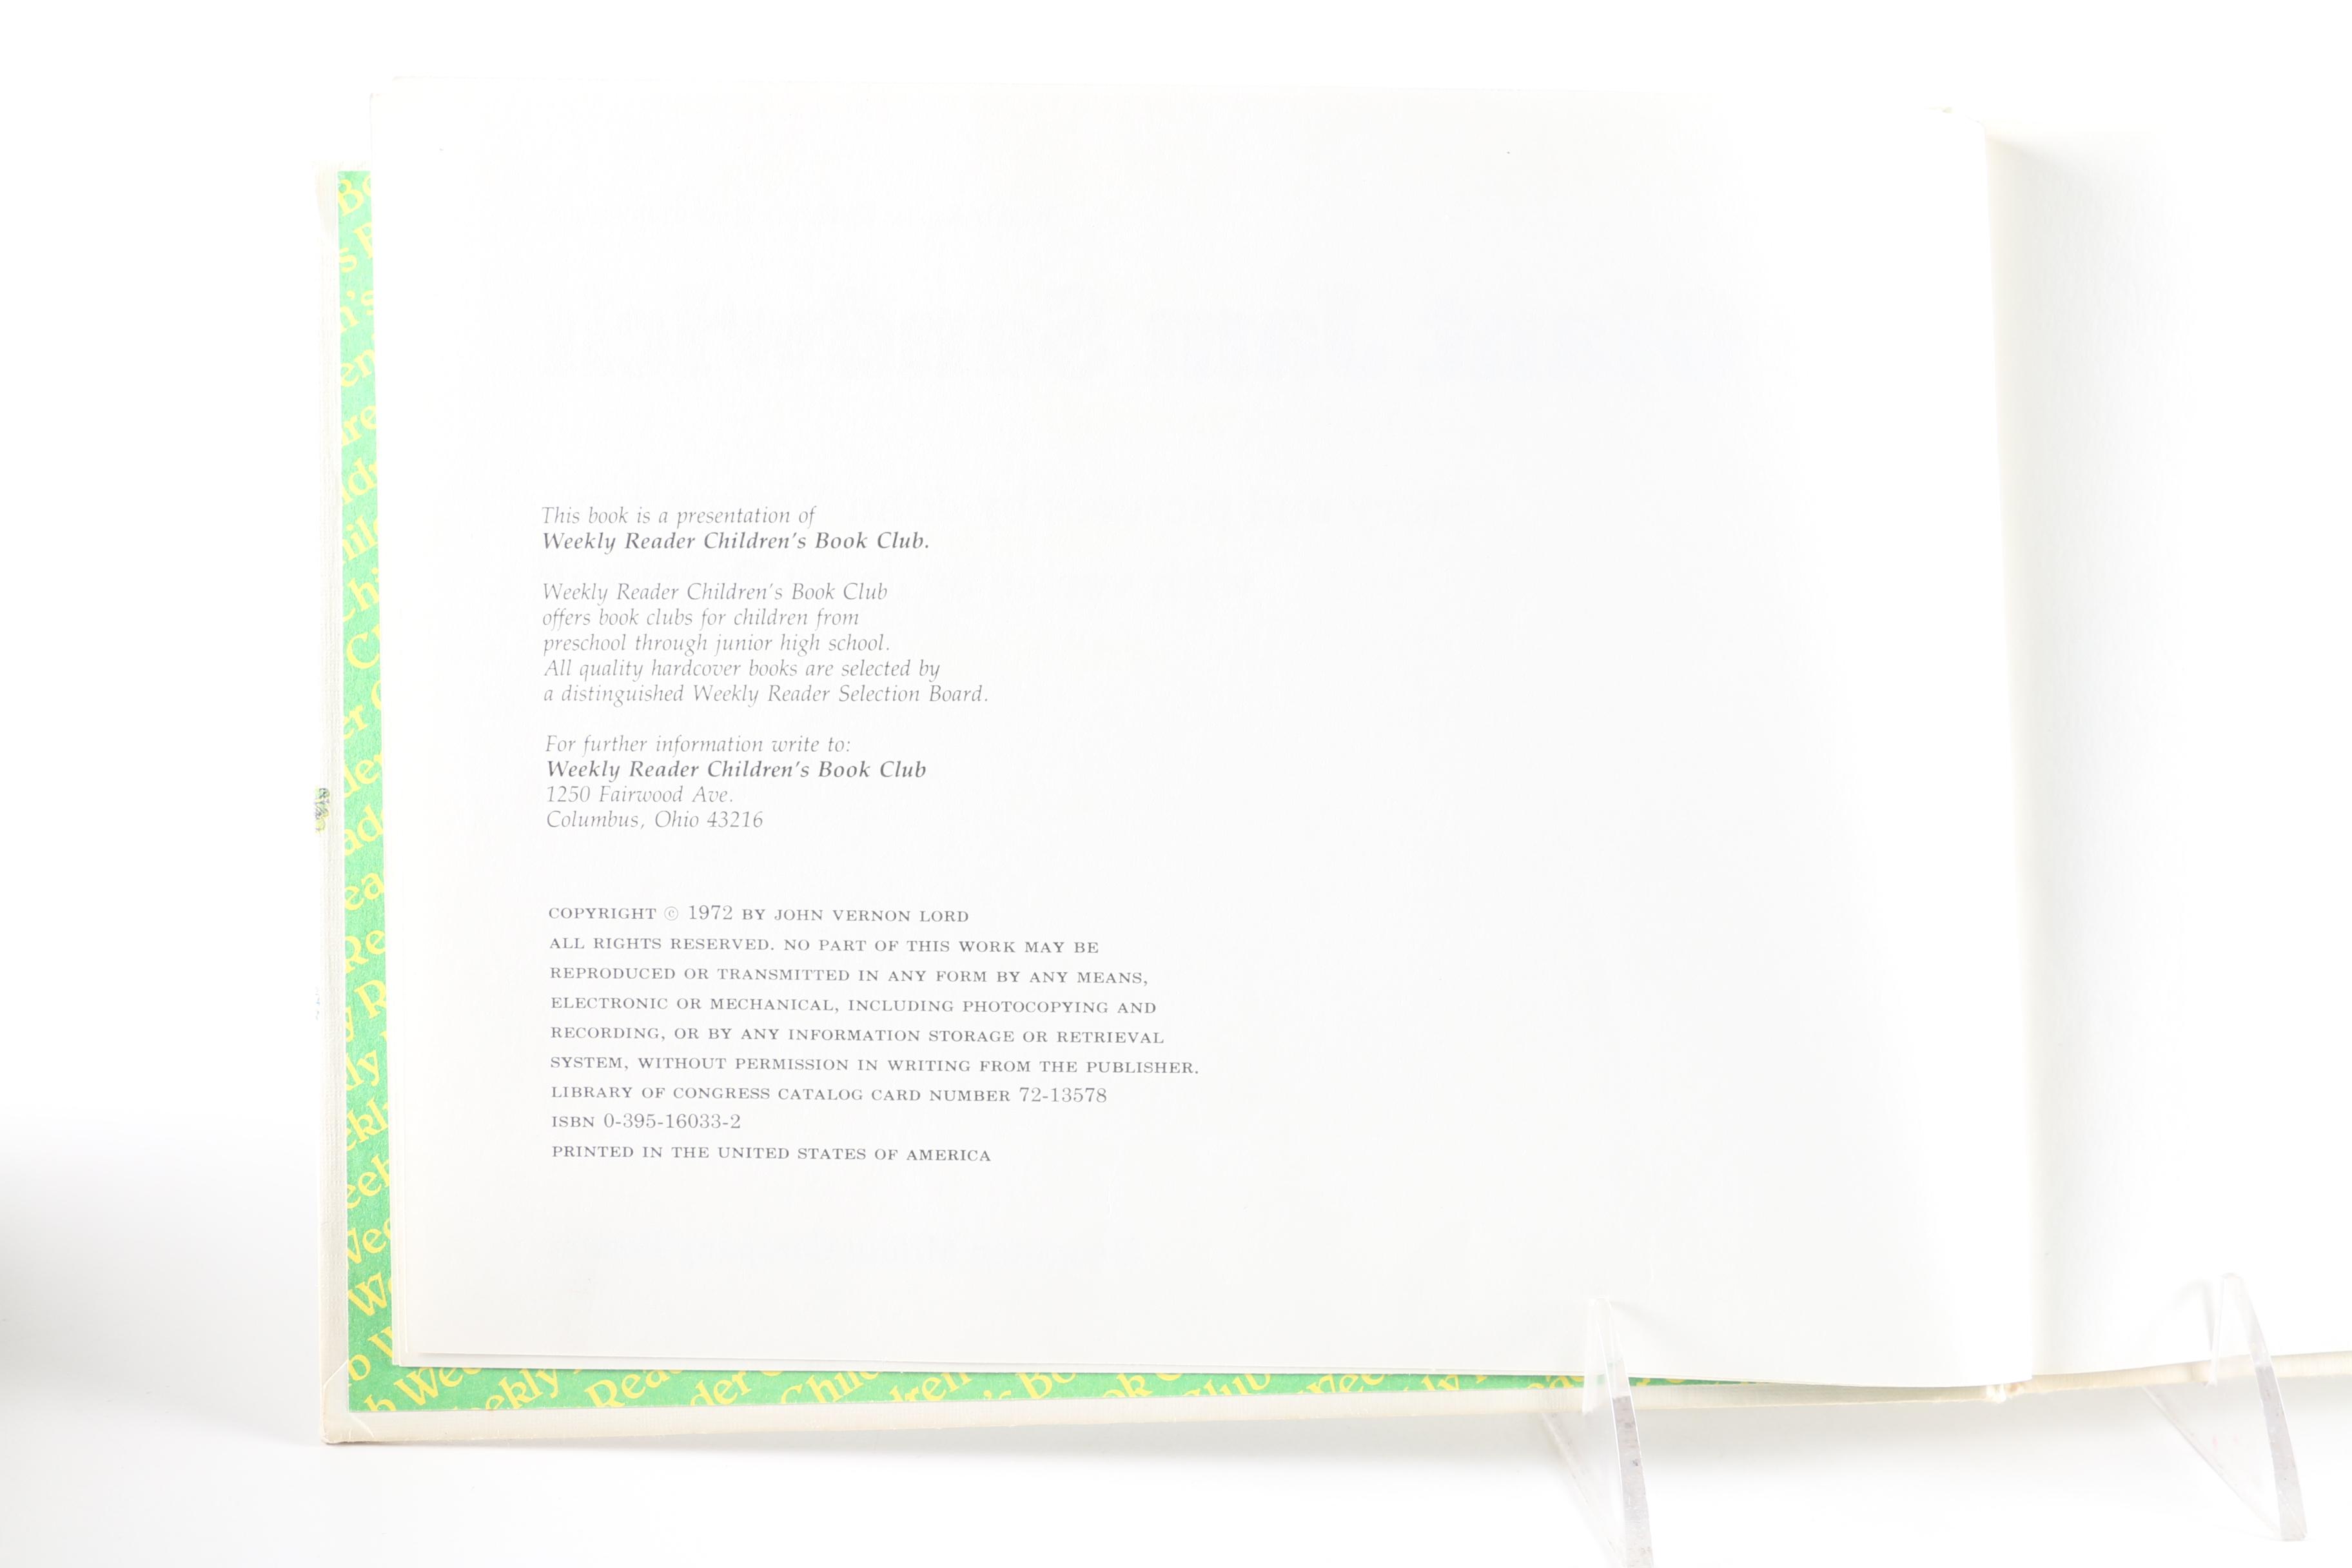 This book is a presentation of
Weekly Reader Children's Book Club.
Weekly Reader Children's Book Club
offers book clubs for children from
preschool through junior high school.
All quality hardcover books are selected by
a distinguished Weekly Reader Selection Board.
For further information write to:
Weekly Reader Children's Book Club
1250 Fairwood Ave.
Columbus, Ohio 43216
COPYRIGHT © 1972 BY JOHN VERNON LORD
ALL RIGHTS RESERVED. NO PART OF THIS WORK MAY BE
REPRODUCED OR TRANSMITTED IN ANY FORM BY ANY MEANS,
ELECTRONIC OR MECHANICAL, INCLUDING PHOTOCOPYING AND
RECORDING, OR BY ANY INFORMATION STORAGE OR RETRIEVAL
SYSTEM, WITHOUT PERMISSION IN WRITING FROM THE PUBLISHER.
LIBRARY OF CONGRESS CATALOG CARD NUMBER 72-13578
ISBN 0-395-16033-2
PRINTED IN THE UNITED STATES OF AMERICA